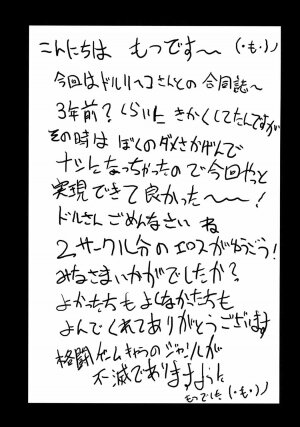 こんにちは もつです〜 (・も・)ノ
今回はドルリヘコさんとの合同誌〜
3年前?くらいに きかくしてたんですが
その時は ぼくのダメさかげんで
ナシになっちゃったので今回やっと
実現できて良かった〜〜!
ドルさん ごめんなさい ね
2サークル分のエロスがゆうごう!
みなさまいかがでしたか?
よかったも よしなかたも
よんでくれてありがとうございます
格闘ゲームきゃらのジャンルが
不滅でありますように
もつでした (・も・)ノ